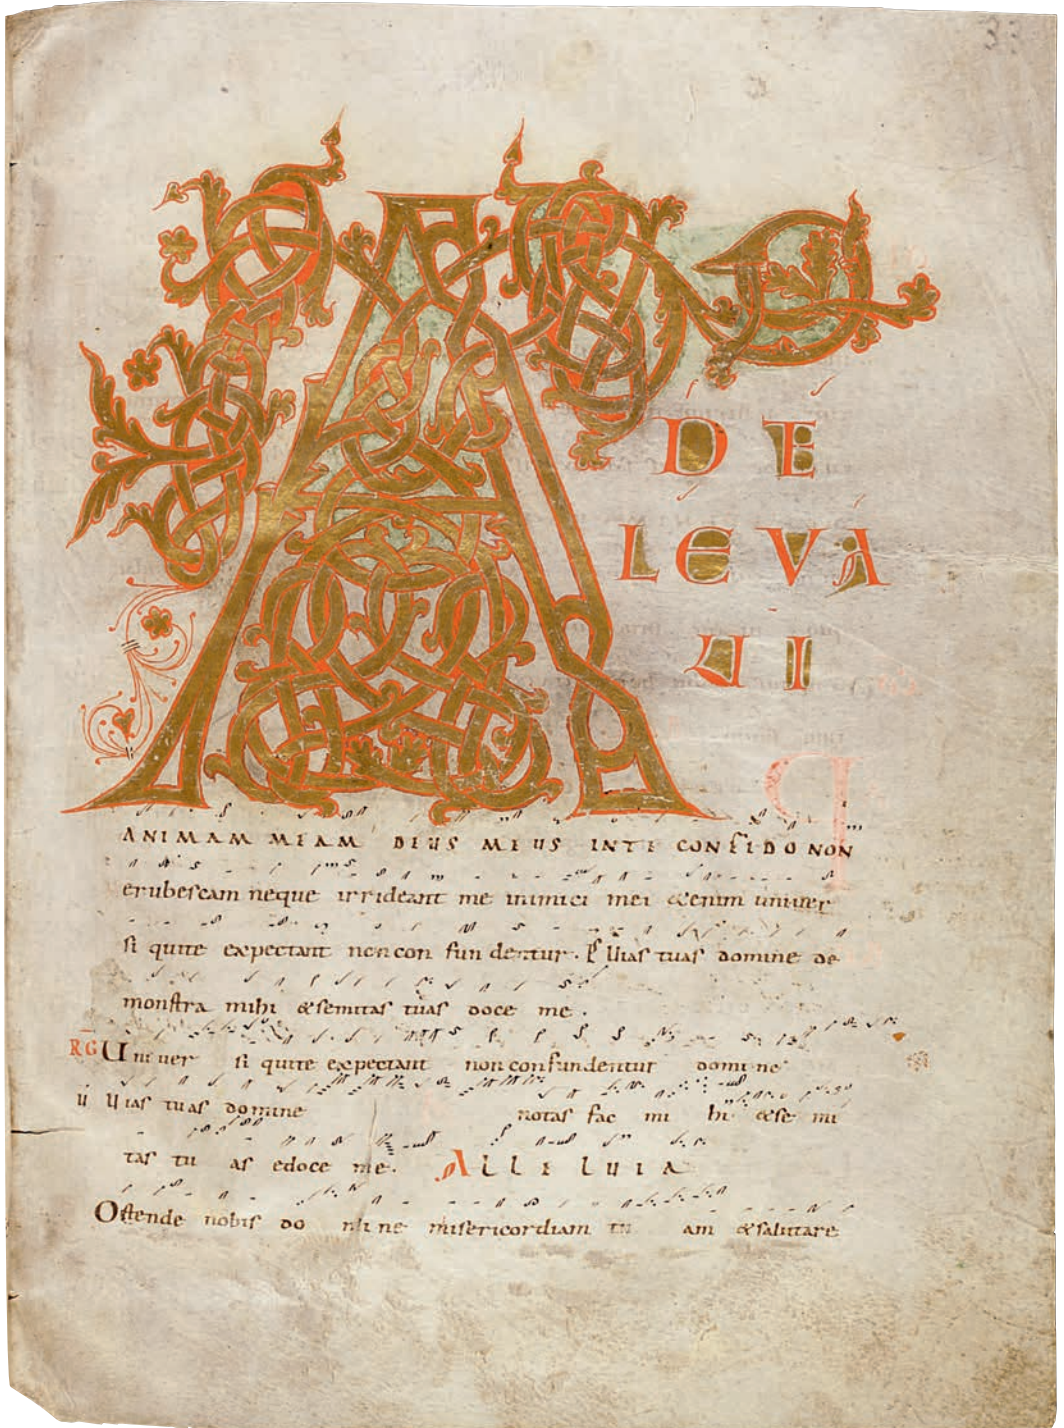 33
A
DE
LEVA
UI
ANIMAM MEAM DEUS MEUS INTE CONFIDO NON
erubescam neque irrideant me inimici mei &enim univer
si quite expectant noncon fundentur. Ps Uias tuas domine de
monstra mihi &semitas tuas doce me.
RG Univer si quite expectant nonconfundentur domine
V Uias tuas domine notas fac mi hi &se mi
tas tu as edoce me. ALLELUIA
Ostende nobis do mine misericordiam tu am &salutare